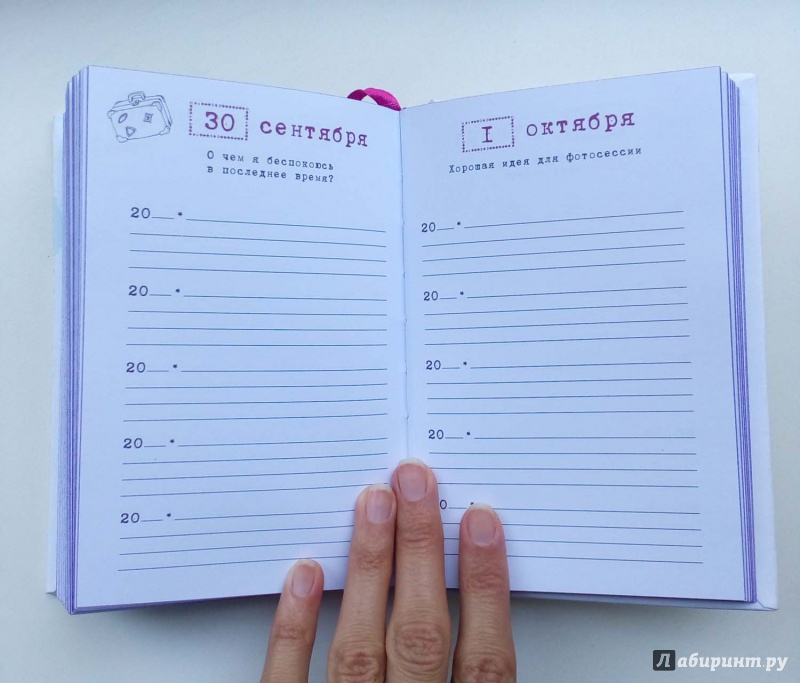 30 сентября
О чем я беспокоюсь
в последнее время?
20___ •
20___ •
20___ •
20___ •
20___ •
1 октября
Хорошая идея для фотосессии
20___ •
20___ •
20___ •
20___ •
0___ •
Лабиринт.ру